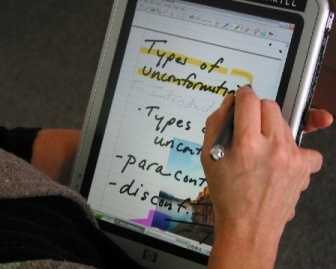 Types of
unconformit
Introduct
· Types o
uncon
- para conf
- disconf.
hp